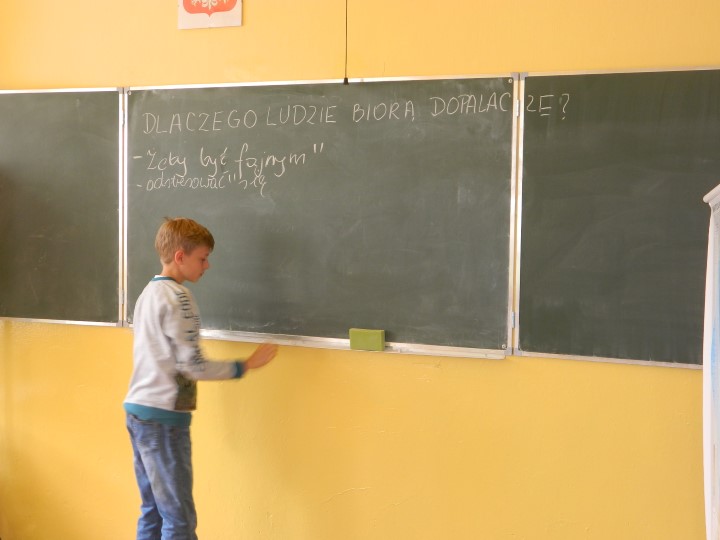 DLACZEGO LUDZIE BIORĄ DOPALACZE?
- Żeby być fajnym"
- odstresować się